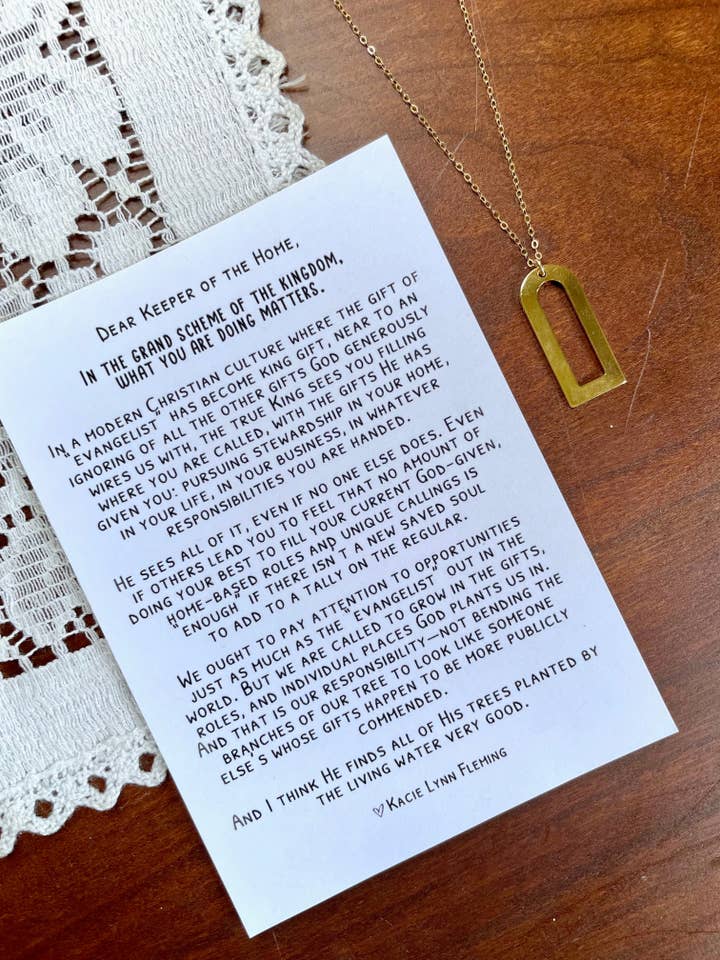 Dear Keeper of the Home,
In the grand scheme of the kingdom,
what you are doing matters.
In a modern Christian culture where the gift of
"evangelist" has become king gift, near to an
ignoring of all the other gifts God generously
wires us with, the true King sees you filling
where you are called, with the gifts He has
given you: pursuing stewardship in your home,
in your life, in your business, in whatever
responsibilities you are handed.
He sees all of it, even if no one else does. Even
if others lead you to feel that no amount of
doing your best to fill your current God-given,
home-based roles and unique callings is
"enough" if there isn't a new saved soul
to add to a tally on the regular.
We ought to pay attention to opportunities
just as much as the "evangelist" out in the
world. But we are called to grow in the gifts,
roles, and individual places God plants us in.
And that is our responsibility—not bending the
branches of our tree to look like someone
else's whose gifts happen to be more publicly
commended.
And I think He finds all of His trees planted by
the living water very good.
♡ Kacie Lynn Fleming